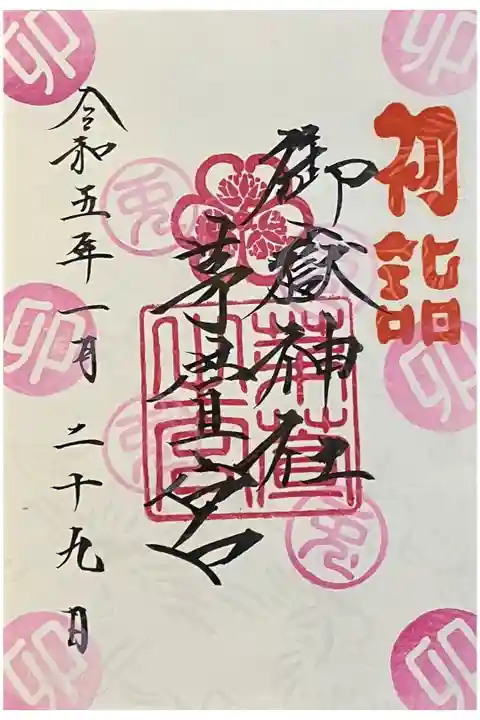 初詣
御嶽神社
茅萱宮
令和五年一月二十九日
卯
卯
卯
卯
卯
卯
兎
兎
兎
兎